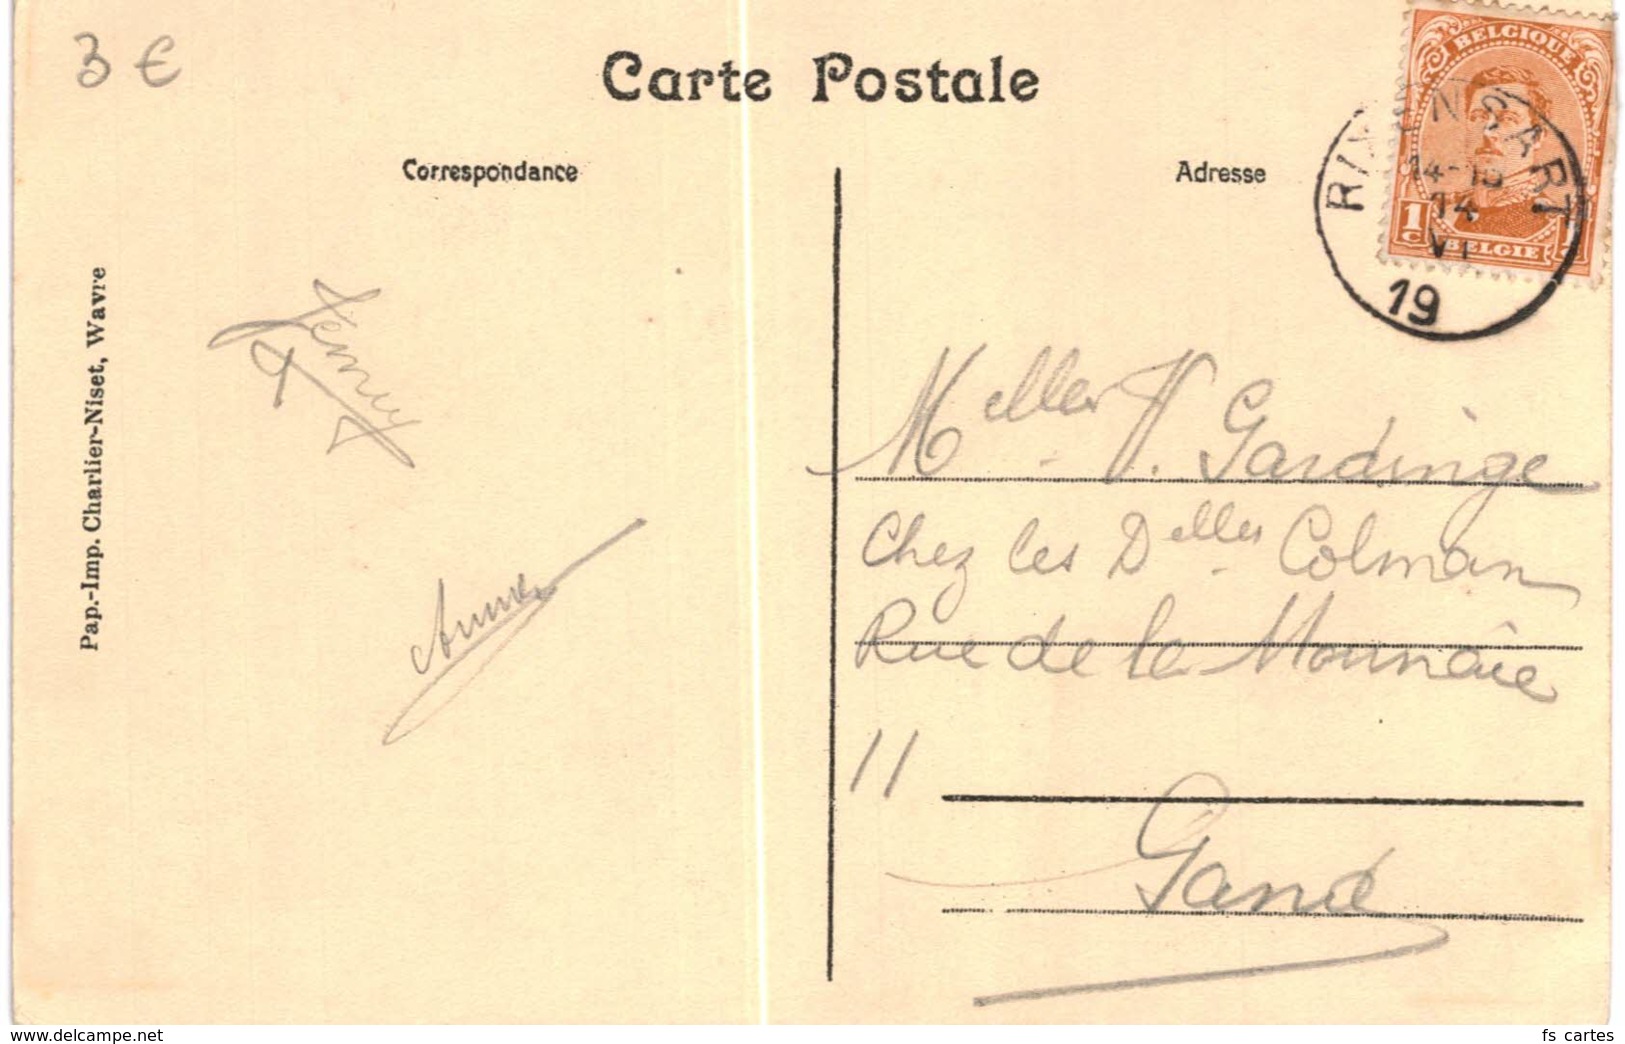 3 €
Carte Postale
Correspondance
Adresse
BELGIQUE
1 C
BELGIE
RIXENSART
14
VI
19
Pap.-Imp. Charlier-Niset, Wavre
Melles V. Gardinge
Chez les Delles Colman
Rue de la Monnaie
11
Gand
www.delcampe.net
fs_cartes